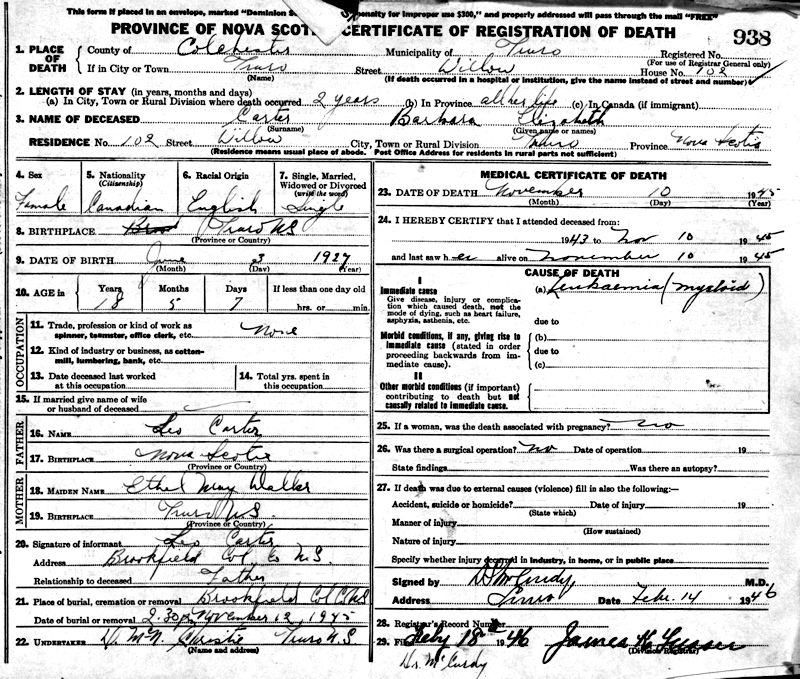 This form if placed in an envelope, marked "Dominion S penalty for improper use $300," and properly addressed will pass through the mail "FREE"
PROVINCE OF NOVA SCOTI CERTIFICATE OF REGISTRATION OF DEATH 938
1. PLACE OF DEATH County of Colchester Municipality of Truro Registered No. (For use of Registrar General only)
If in City or Town Truro (Name) Street Willow House No. 102
(If death occurred in a hospital or institution, give the name instead of street and number)
2. LENGTH OF STAY (in years, months and days)
(a) In City, Town or Rural Division where death occurred 2 years (b) In Province all her life (c) In Canada (if immigrant)
3. NAME OF DECEASED Carter (Surname) Barbara Elizabeth (Given name or names)
RESIDENCE No. 102 Street Willow City, Town or Rural Division Truro Province Nova Scotia
(Residence means usual place of abode. Post Office Address for residents in rural parts not sufficient)
4. Sex Female
5. Nationality (Citizenship) Canadian
6. Racial Origin English
7. Single, Married, Widowed or Divorced (write the word) Single
8. BIRTHPLACE Truro N.S (Province or Country)
9. DATE OF BIRTH June (Month) 3 (Day) 1927 (Year)
10. AGE in Years 18 Months 5 Days 7 If less than one day old hrs. or min.
OCCUPATION
11. Trade, profession or kind of work as spinner, teamster, office clerk, etc. None
12. Kind of industry or business, as cotton-mill, lumbering, bank, etc.
13. Date deceased last worked at this occupation
14. Total yrs. spent in this occupation
15. If married give name of wife or husband of deceased
FATHER
16. NAME Leo Carter
17. BIRTHPLACE Nova Scotia (Province or Country)
MOTHER
18. MAIDEN NAME Ethel May Walker
19. BIRTHPLACE Truro N.S. (Province or Country)
20. Signature of informant Leo Carter
Address Brookfield Col Co N.S.
Relationship to deceased Father
21. Place of burial, cremation or removal Brookfield Col Co N.S
Date of burial or removal 2.30 p November 12, 1945
22. UNDERTAKER D. McN. Christie Truro N.S. (Name and address)
MEDICAL CERTIFICATE OF DEATH
23. DATE OF DEATH November (Month) 10 (Day) 1945 (Year)
24. I HEREBY CERTIFY that I attended deceased from:
1943 to Nov 10 1945
and last saw her alive on November 10 1945
CAUSE OF DEATH
I
Immediate cause
Give disease, injury or complication which caused death, not the mode of dying, such as heart failure, asphyxia, asthenia, etc.
(a) Leukaemia (myeloid)
due to
Morbid conditions, if any, giving rise to immediate cause (stated in order proceeding backwards from immediate cause).
(b)
due to
(c)
II
Other morbid conditions (if important) contributing to death but not causally related to immediate cause.
25. If a woman, was the death associated with pregnancy? No
26. Was there a surgical operation? No Date of operation 19
State findings Was there an autopsy?
27. If death was due to external causes (violence) fill in also the following:—
Accident, suicide or homicide? (State which) Date of injury 19
Manner of injury (How sustained)
Nature of injury
Specify whether injury occurred in industry, in home, or in public place
Signed by DS McCurdy M.D.
Address Truro Date Febr. 14 1946
28. Registrar's Record Number
29. Filed Feby 18 1946 James H (Division Registrar)
Dr. McCurdy